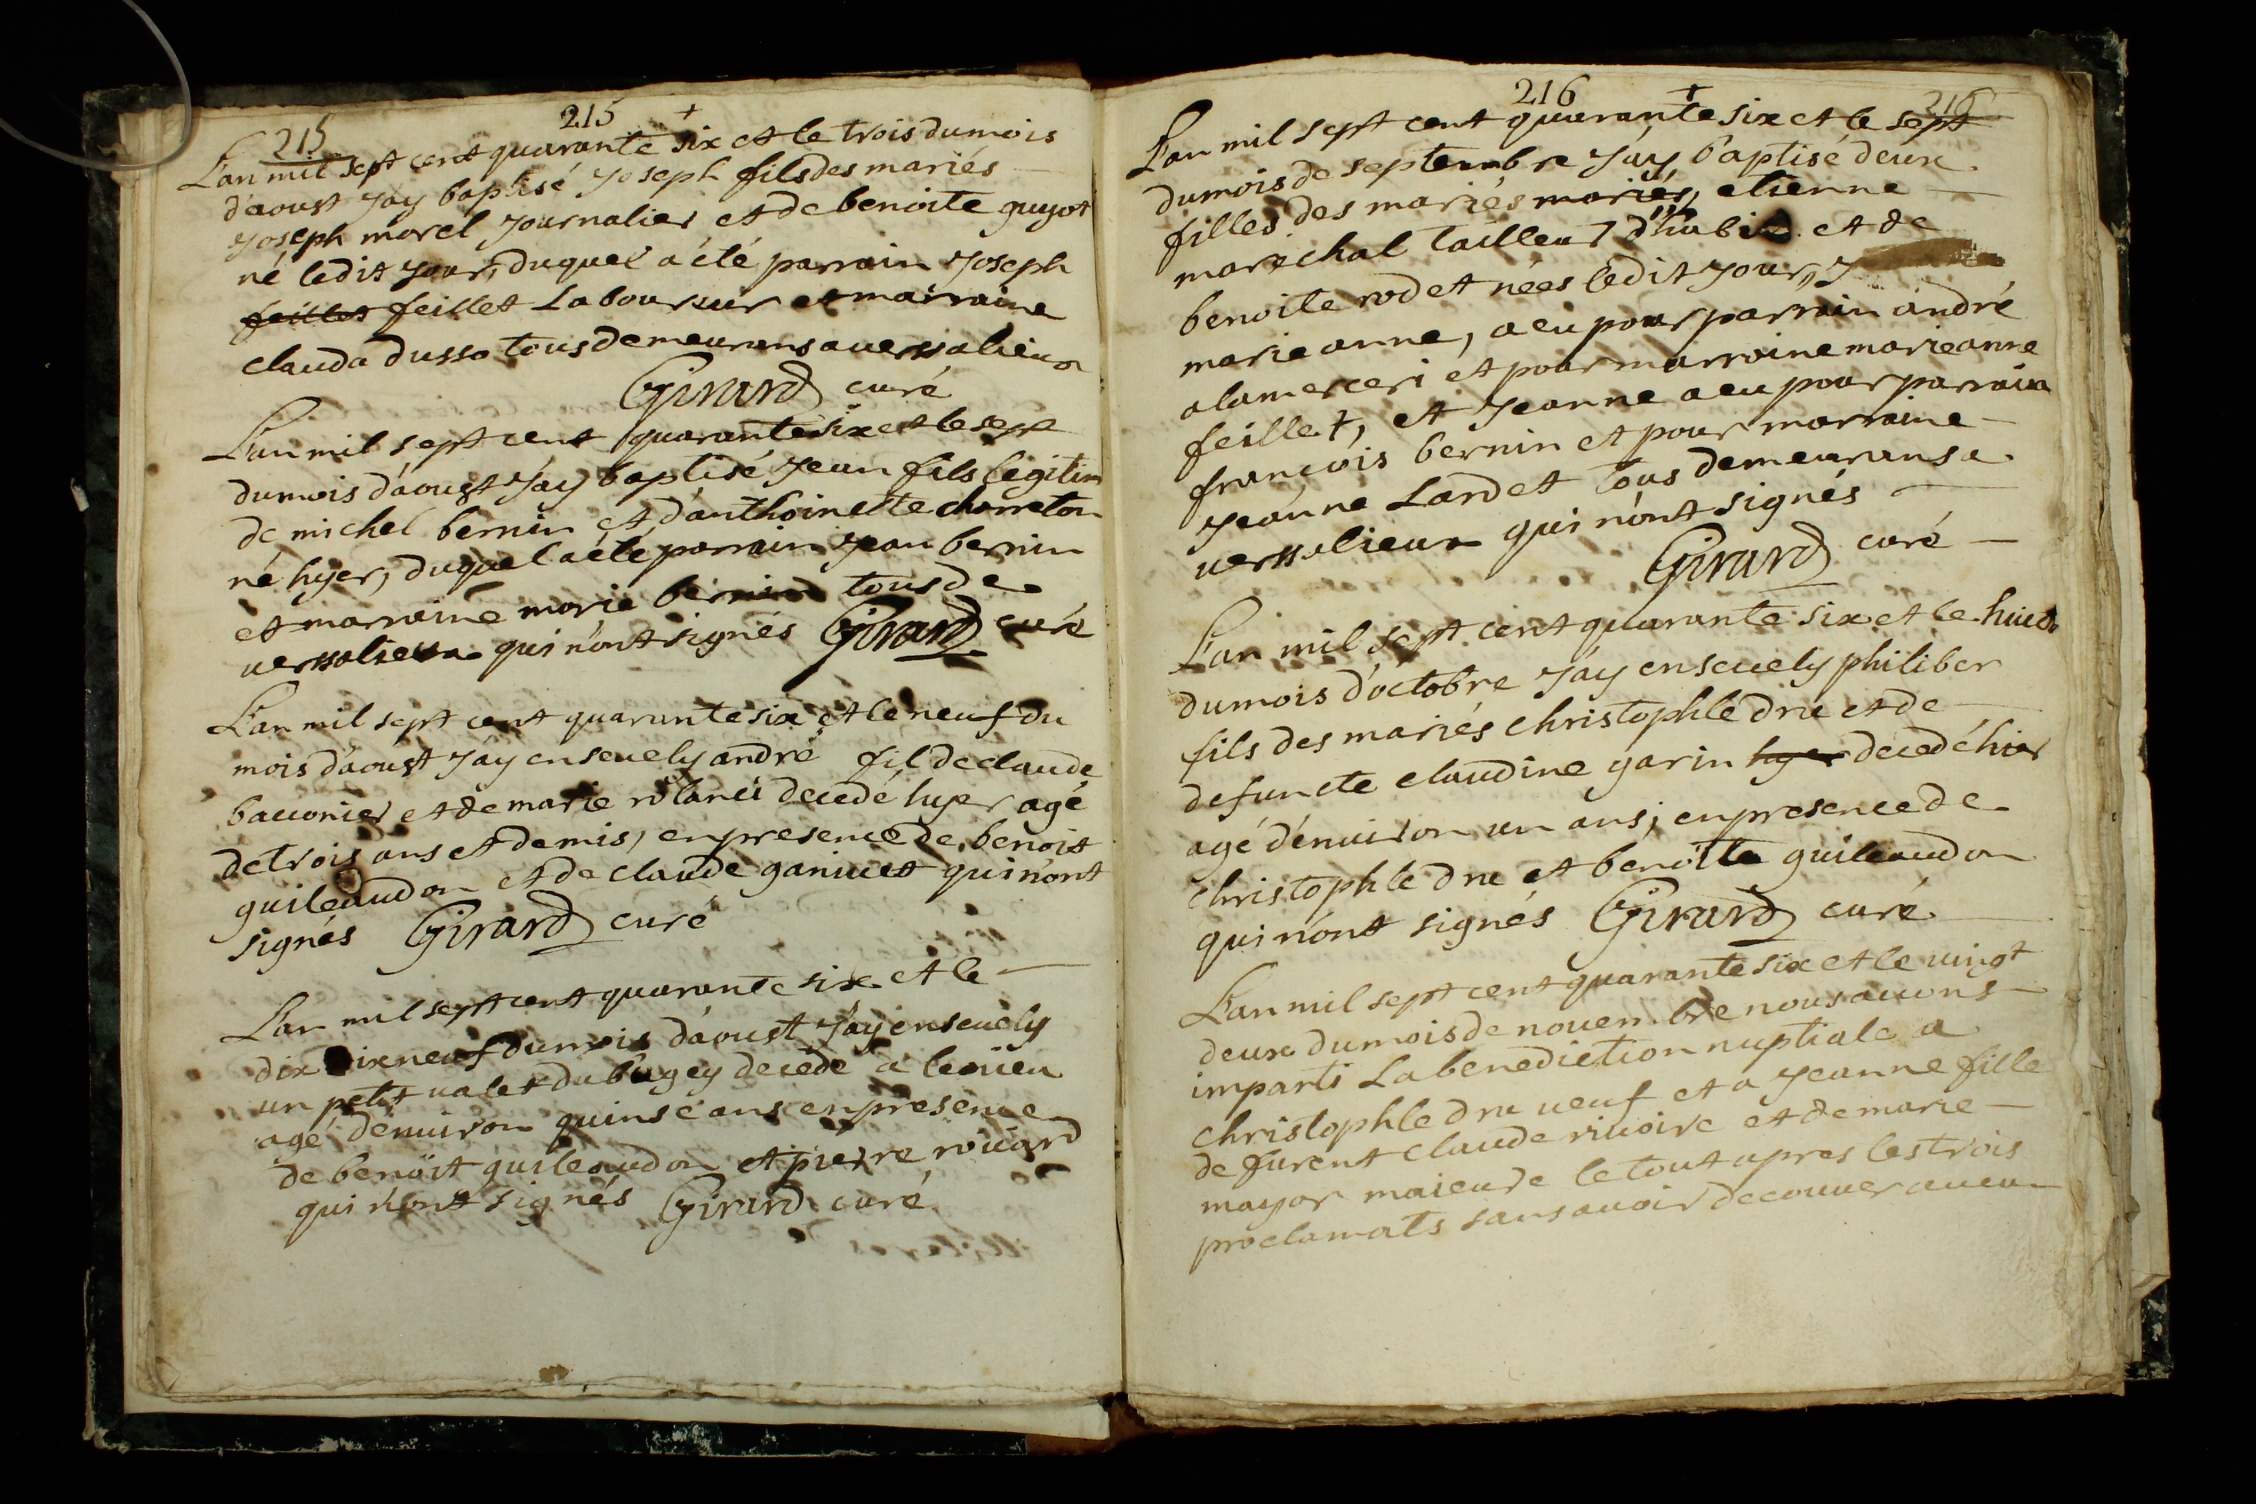 215 +
215
L'an mil sept cent quarante six et le trois du mois
d'aoust j'ay baptisé joseph fils des mariés
joseph morel journalier et de benoite guyot
né ledit jour, duquel a été parrain joseph
feillet feillet laboureur et marraine
clauda dusso tous demeurans a verssalieux
Girard curé
L'an mil sept cent quarante six et le sept
du mois d'aoust j'ay baptisé jean fils legitim
de michel bernin et d'anthoinette charreton
né hyer, duquel a été parrain jean bernin
et marraine marie bernin tous de
verssalieux qui n'ont signés Girard curé
L'an mil sept cent quarante six et le neuf du
mois d'aoust j'ay ensevely andré fil de claude
bauonier et de marie rolanci decedé hyer agé
de trois ans et demis, en presence de benoit
guileaudon et de claude ganivet qui n'ont
signés Girard curé
L'an mil sept cent quarante six et le
dix dix neuf du mois d'aoust j'ay ensevely
un petit valet du bugey decedé a
agé d'environ quinse ans en presence
de benoit guileaudon et pierre roüard
qui n'ont signés Girard curé
216 + 216
L'an mil sept cent quarante six et le sept
du mois de septembre j'ay baptisé deux
filles des mariés mariés, etienne
marechal tailleur d'habit et de
benoite rodet nées ledit jour,
marie anne, a eu pour parrain andré
alamerceri et pour marraine marie anne
feillet, et jeanne a eu pour parrain
françois bernin et pour marraine
jeanne Lardet tous demeurans a
verssalieux qui n'ont signés
Girard curé
L'an mil sept cent quarante six et le huict
du mois d'octobre j'ay ensevely philiber
fils des mariés christophle dru et de
defuncte claudine garin hyer decedé hier
agé d'environ un ans, en presence de
christophle dru et benoite guileaudon
qui n'ont signés Girard curé
L'an mil sept cent quarante six et le vingt
deux du mois de novembre nous avons
imparti La benediction nuptiale a
christophle dru veuf et a jeanne fille
de furent claude rivoire et de marie
mayor maieure le tout apres les trois
proclamats sans avoir decouver aucun